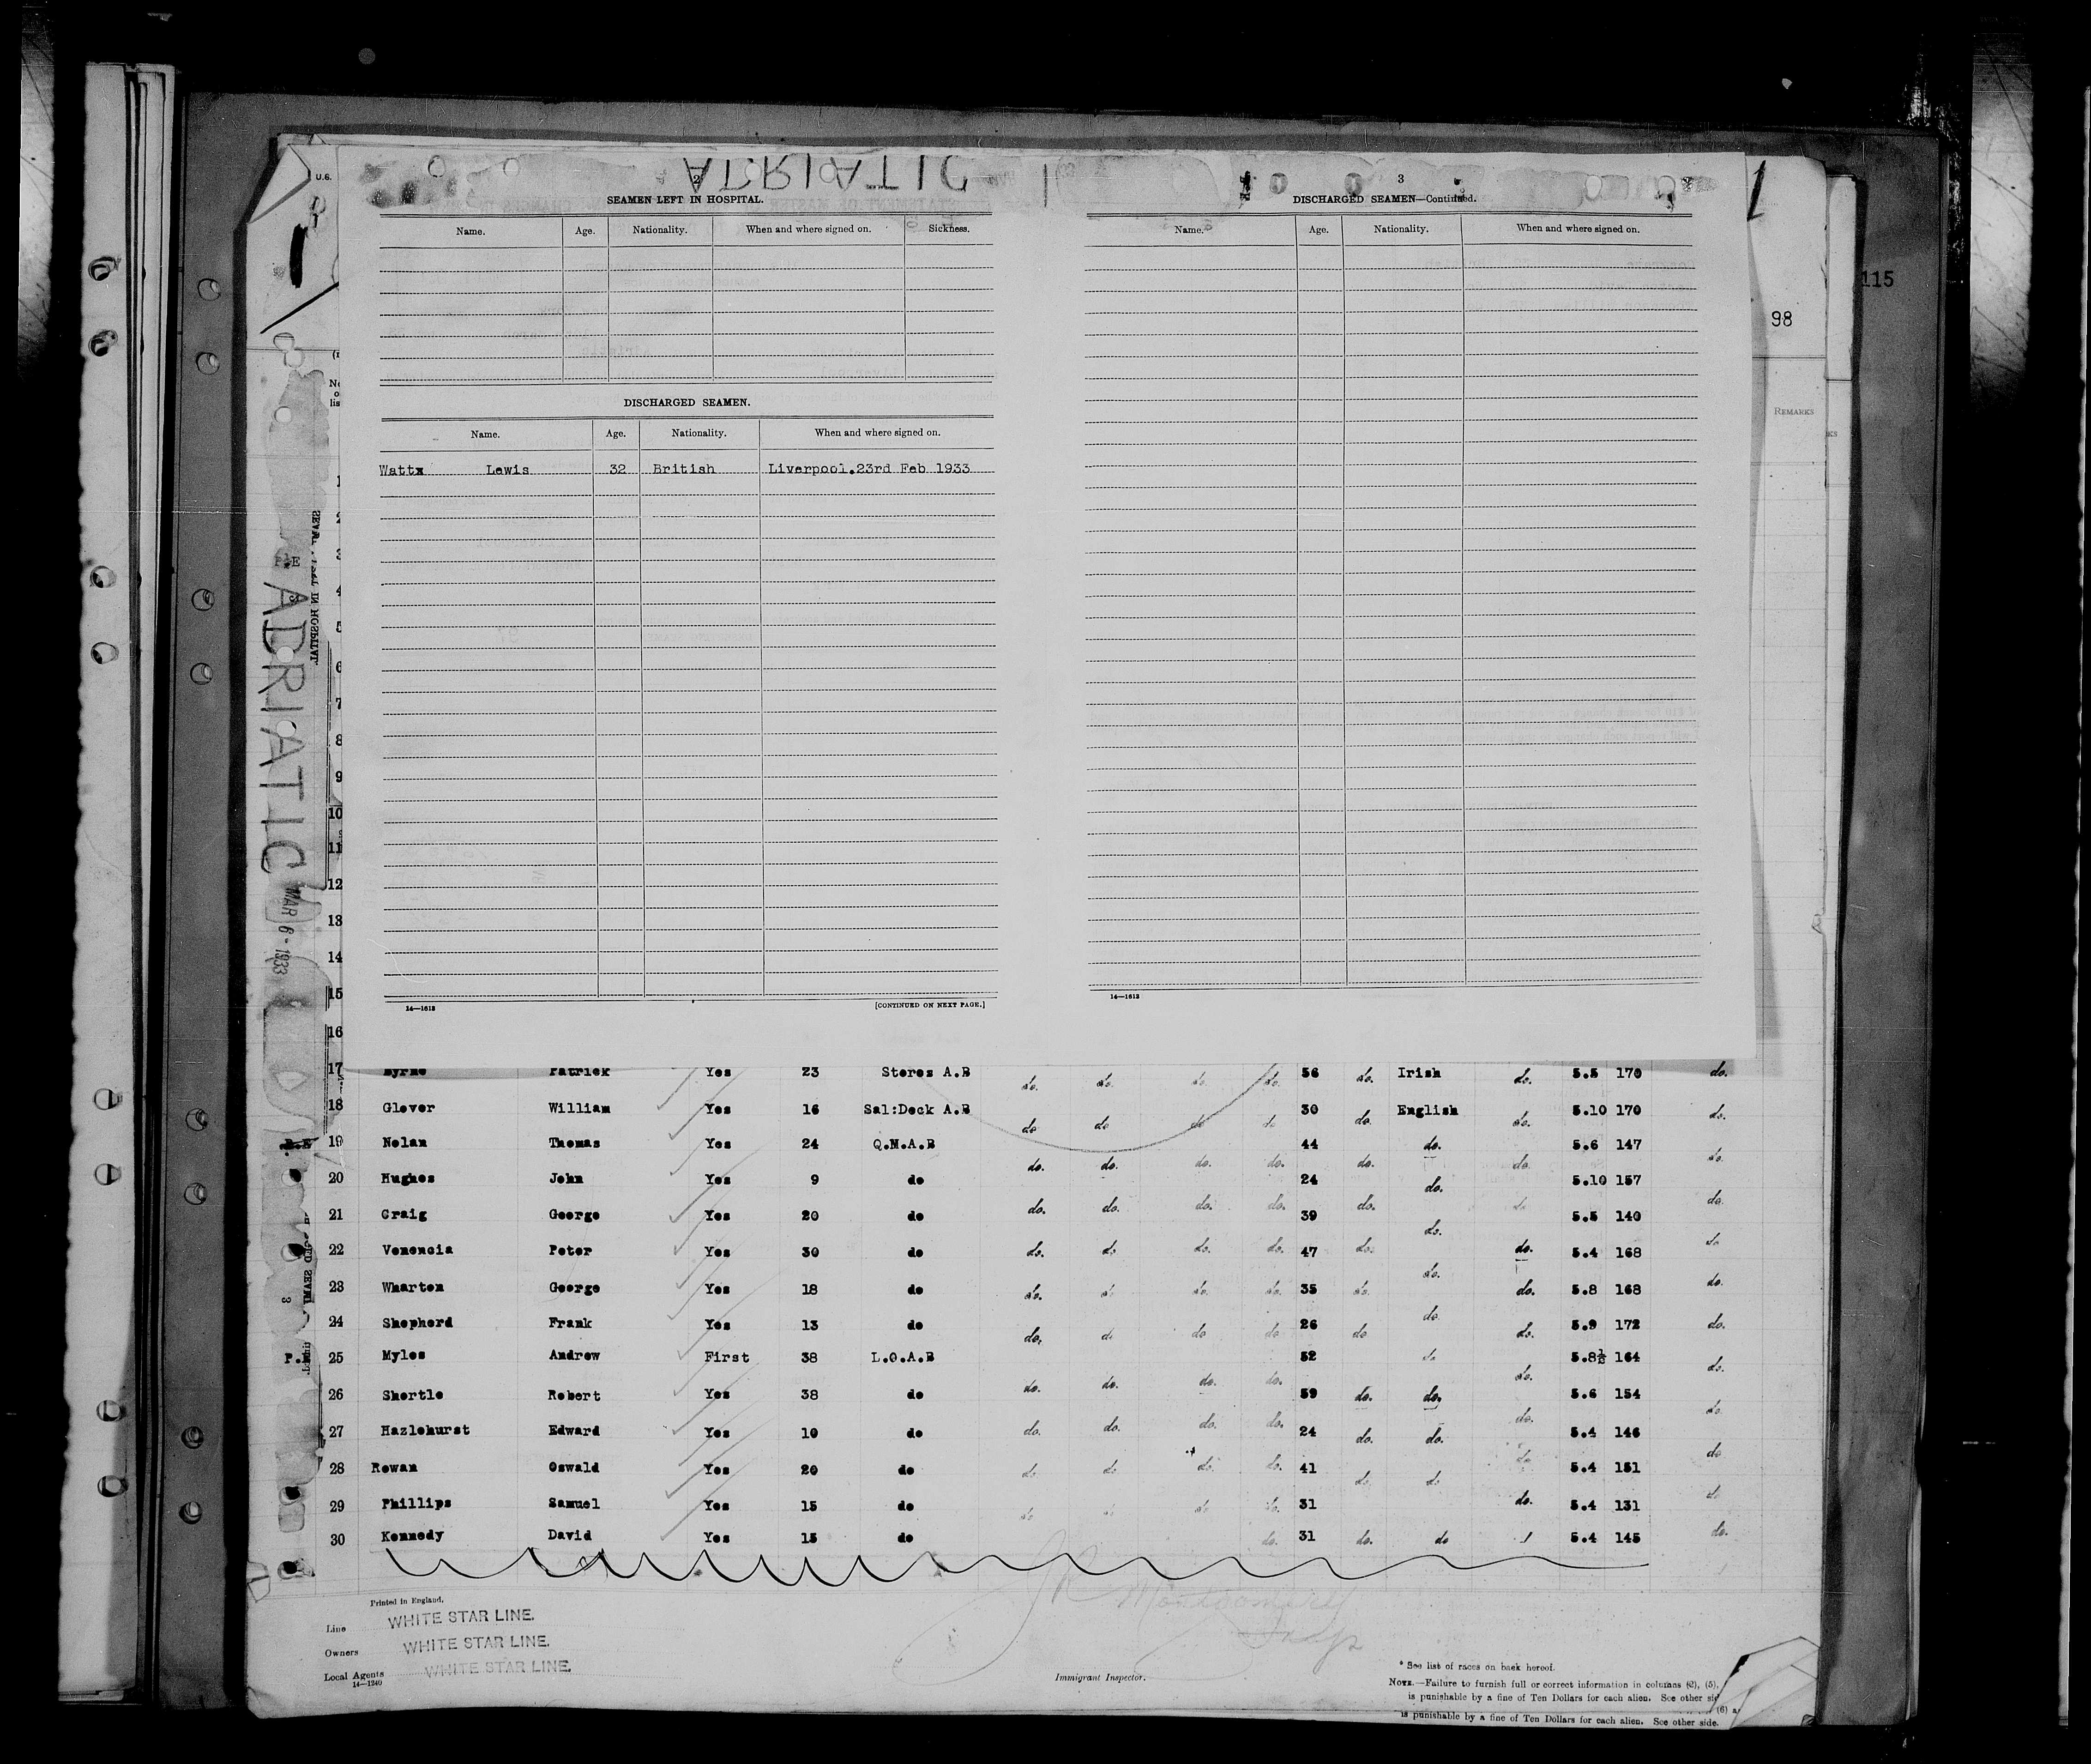 U.S.
ADRIATIC
MAR 6 - 1933
115
98
REMARKS
2
SEAMEN LEFT IN HOSPITAL.
Name. Age. Nationality. When and where signed on. Sickness.
DISCHARGED SEAMEN.
Name. Age. Nationality. When and where signed on.
Wattx Lewis 32 British Liverpool.23rd Feb 1933
14—1612 [CONTINUED ON NEXT PAGE.]
3
DISCHARGED SEAMEN—Continued.
Name. Age. Nationality. When and where signed on.
14—1612
1
2
3
4
5
6
7
8
9
10
11
12
13
14
15
16
17 Byrne Patrick Yes 23 Stores A.B do. do. do. do. 56 do. Irish do. 5.5 170 do.
18 Glover William Yes 16 Sal:Deck A.B do do do do 30 do. English do. 5.10 170 do.
19 Nolan Thomas Yes 24 Q.M.A.B do. do. do. do. 44 do. do. do. 5.6 147 do.
20 Hughes John Yes 9 do do. do. do. do. 24 do. do. do. 5.10 157 do.
21 Craig George Yes 20 do do. do. do. do. 39 do. do. 5.5 140 do
22 Venencia Peter Yes 30 do do. do. do. do. 47 do. do. do. 5.4 168 do.
23 Wharton George Yes 18 do do. do. do. do. 35 do. do do. 5.8 168 do.
24 Shepherd Frank Yes 13 do do. do do do 26 do do do. 5.9 172 do.
25 Myles Andrew First 38 L.O.A.B 52 do 5.8½ 164 do.
26 Shortle Robert Yes 38 do do. do. do. do. 59 do. do. do. 5.6 154 do.
27 Hazlehurst Edward Yes 10 do do. do. do. do. 24 do. do. 5.4 146 do
28 Rowan Oswald Yes 20 do do do do. do. 41 do do 5.4 151 do
29 Phillips Samuel Yes 15 do do do do do. 31 do. 5.4 131
30 Kennedy David Yes 15 do do. 31 do. do 5.4 145 do.
Printed in England.
Line WHITE STAR LINE.
Owners WHITE STAR LINE.
Local Agents WHITE STAR LINE.
14—1240
Immigrant Inspector.
* See list of races on back hereof.
NOTE.—Failure to furnish full or correct information in columns (2), (5),
is punishable by a fine of Ten Dollars for each alien. See other
is punishable by a fine of Ten Dollars for each alien. See other side.